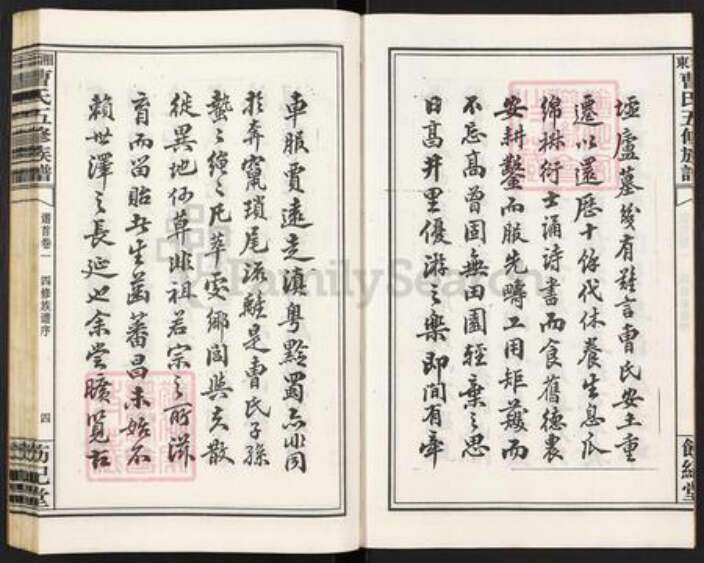 東曹氏五修族譜
餘經堂
墟廬墓幾有難言曹氏安土重
遷以還歷十餘代休養生息瓜
綿椒衍士誦詩書而食舊德農
安耕鑿而服先疇工用矩蒦而
不忘高曾固無田園輕棄之思
日高井里優游之樂即間有牽
車服賈遠走滇粵黔蜀亦非同
於奔竄瑣尾流離是曹氏子孫
蟄蟄繩繩凡萃處鄉閭與夫散
徙異地何莫非祖若宗之所滋
育而留貽者生菑蕃昌未始不
賴世澤之長延也余嘗曠覽古
曹氏五修族譜
譜首卷一
四修族譜序
四
FamilySearch